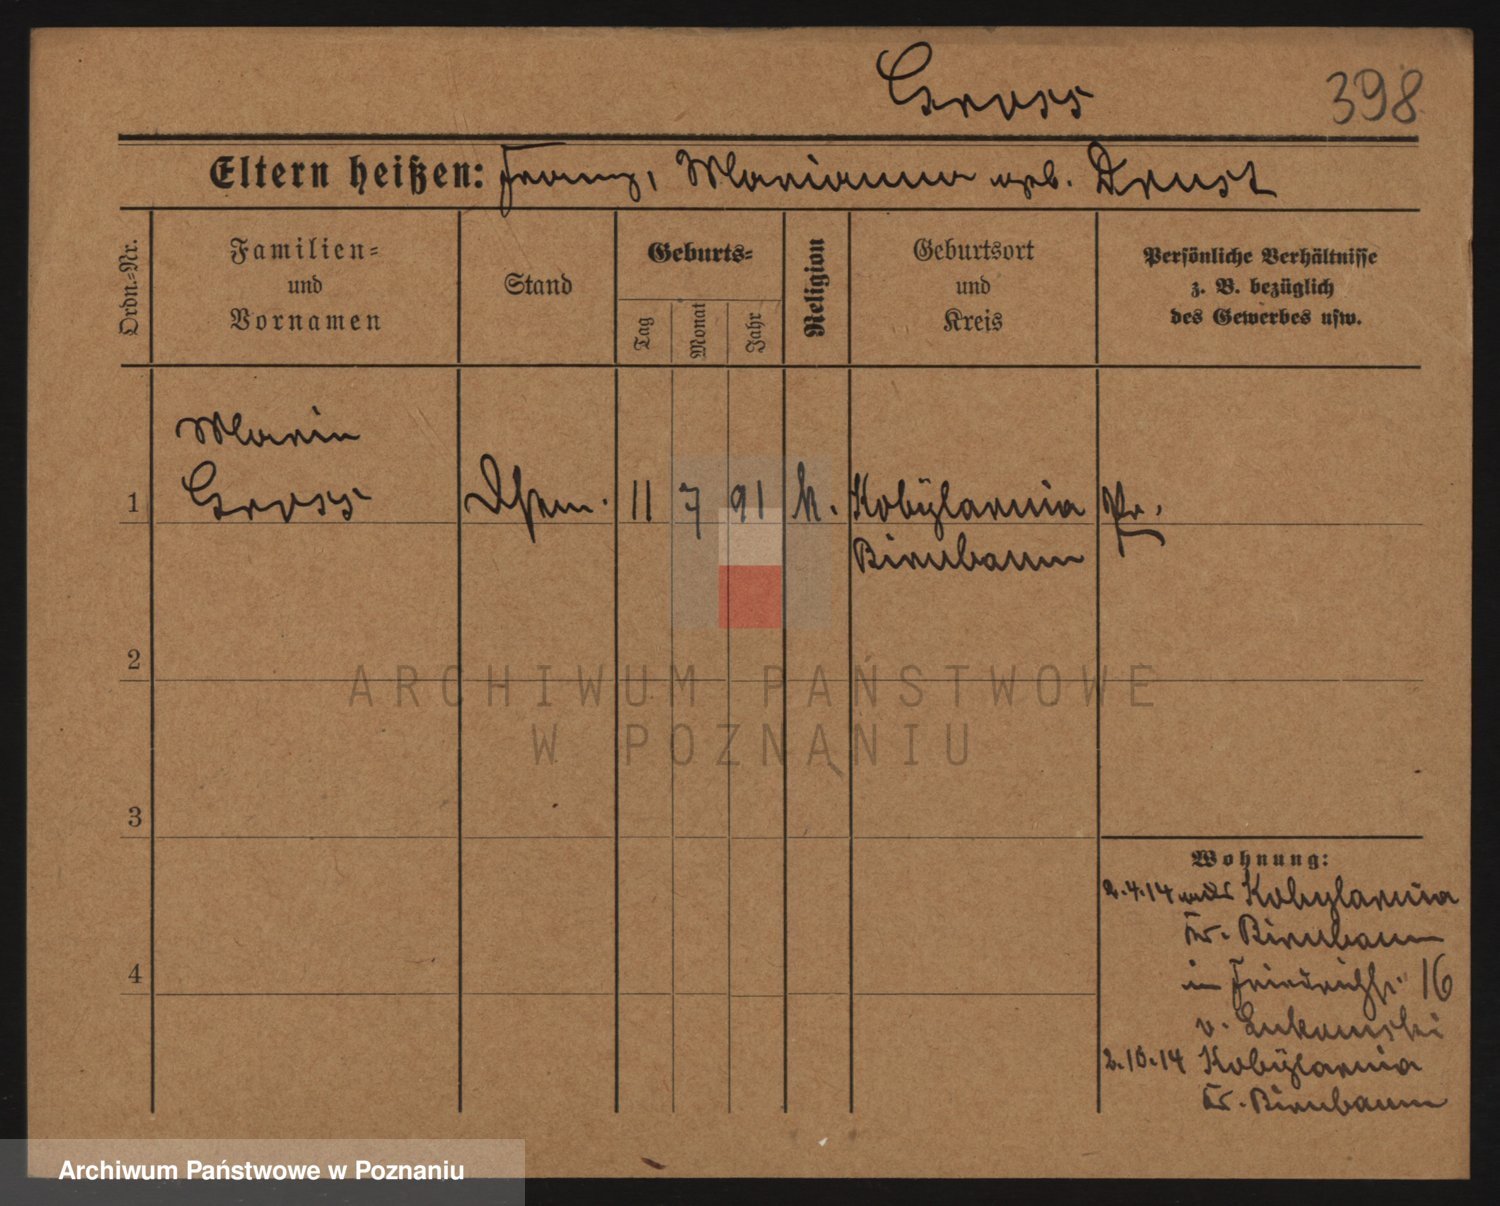 Gross
398
Eltern heißen: Franz, Marianna geb. Drust
Ordn.-Nr.
Familien-
und
Vornamen
Stand
Geburts-
Tag
Monat
Jahr
Religion
Geburtsort
und
Kreis
Persönliche Verhältnisse
z. B. bezüglich
des Gewerbes usw.
Marie
1 Gross 11 7 91 k. Kobylarnia Pr.
Birnbaum
2
ARCHIWUM PAŃSTWOWE
W POZNANIU
3
Wohnung:
2.4.14 aus Kobylarnia
Kr. Birnbaum
in Friedrichstr. 16
4
v. Lukomski
2.10.14 Kobylarnia
Kr. Birnbaum
Archiwum Państwowe w Poznaniu